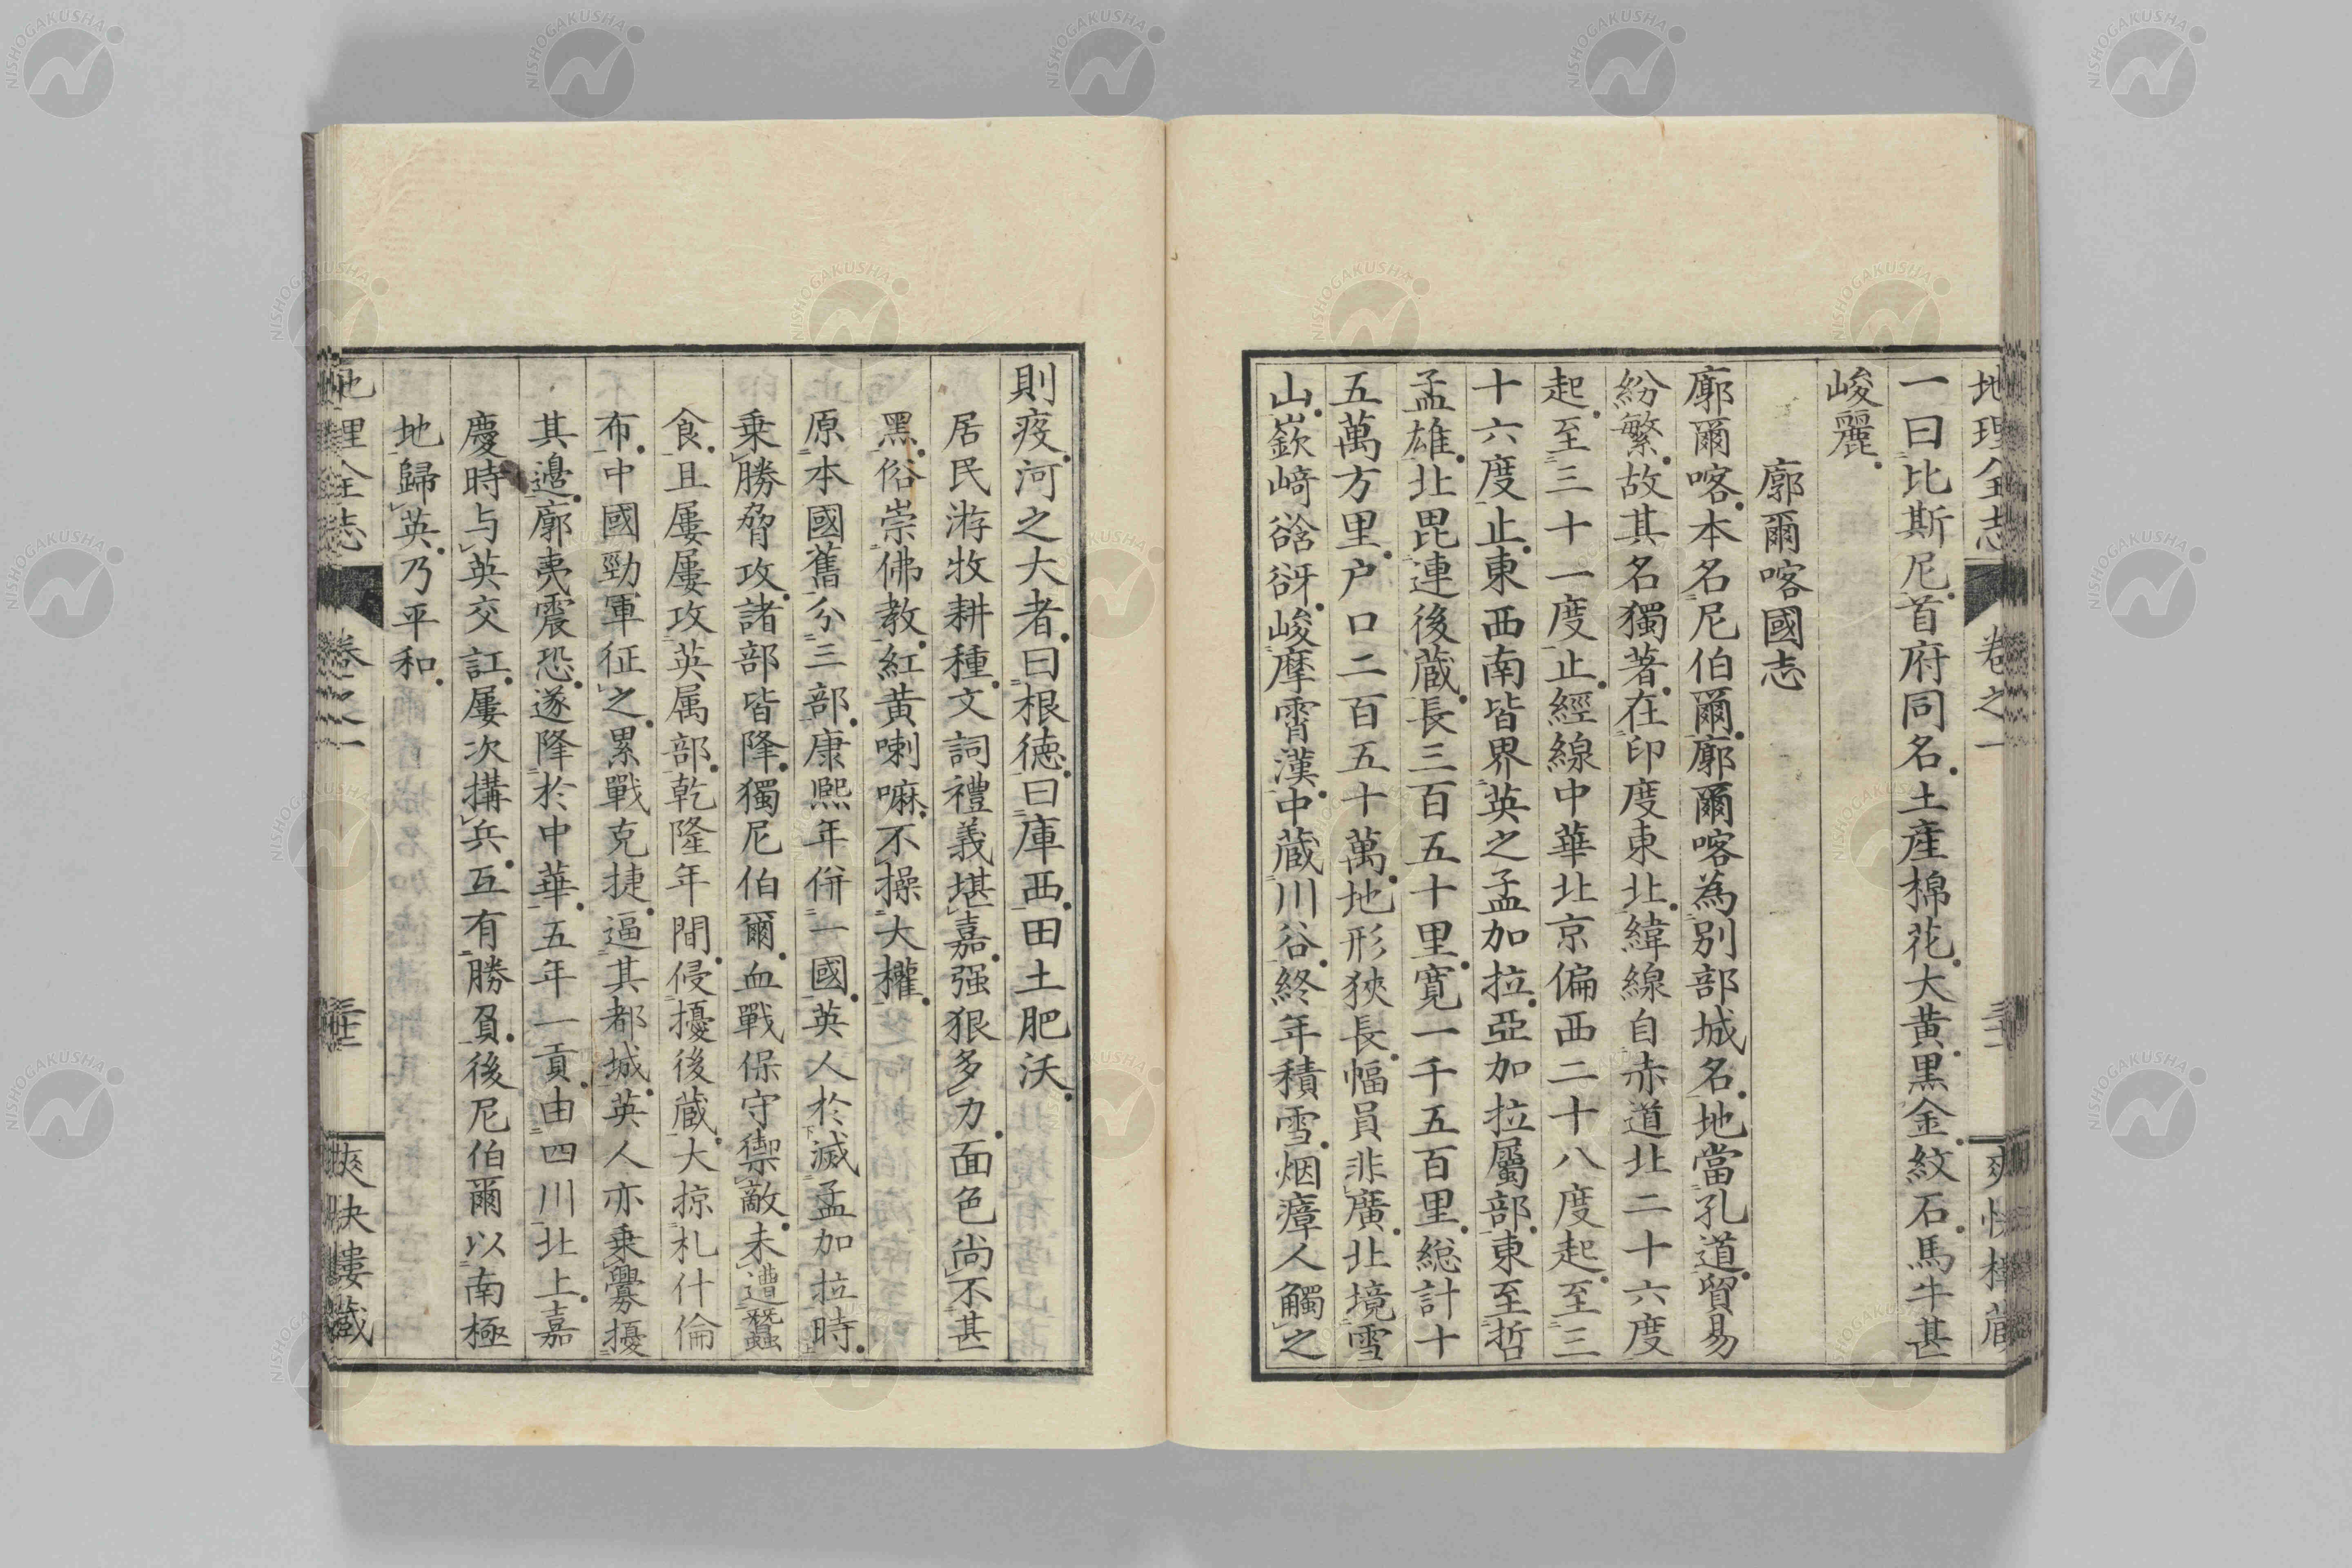 地理全志 卷之一 爽快樓藏
一曰比斯尼首府同名土産棉花大黄黒金紋石馬牛甚
峻麗
廓爾喀國志
廓爾喀本名尼伯爾廓爾喀為别部城名地當孔道貿易
紛繁故其名獨著在印度東北緯線自赤道北二十六度
起至三十一度止經線中華北京偏西二十八度起至三
十六度止東西南皆界英之孟加拉亞加拉屬部東至哲
孟雄北毘連後蔵長三百五十里寛一千五百里総計十
五萬方里户口二百五十萬地形狹長幅員非廣北境雪
山嶔﨑谽谺峻摩霄漢中蔵川谷終年積雪烟瘴人觸之
則疫河之大者曰根德曰庫西田土肥沃
居民游牧耕種文詞禮義堪嘉强狠多力面色尚不甚
黑俗崇佛教紅黄喇嘛不操大權
原本國舊分三部康熙年併一國英人於滅孟加拉時
乗勝脅攻諸部皆降獨尼伯爾血戰保守禦敵未遭蠶
食且屢屢攻英属部乾隆年間侵擾後蔵大掠札什倫
布中國勁軍征之累戰克捷逼其都城英人亦乗釁擾
其邉廓夷震恐遂降於中華五年一貢由四川北上嘉
慶時与英交訌屢次搆兵互有勝負後尼伯爾以南極
地歸英乃平和
地理全志 卷之一 爽快樓藏
NISHOGAKUSHA